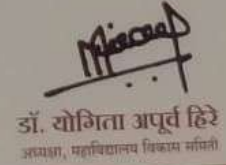 डॉ. योगिता अपूर्व हिरे
अध्यक्षा, महाविद्यालय विकास समिती